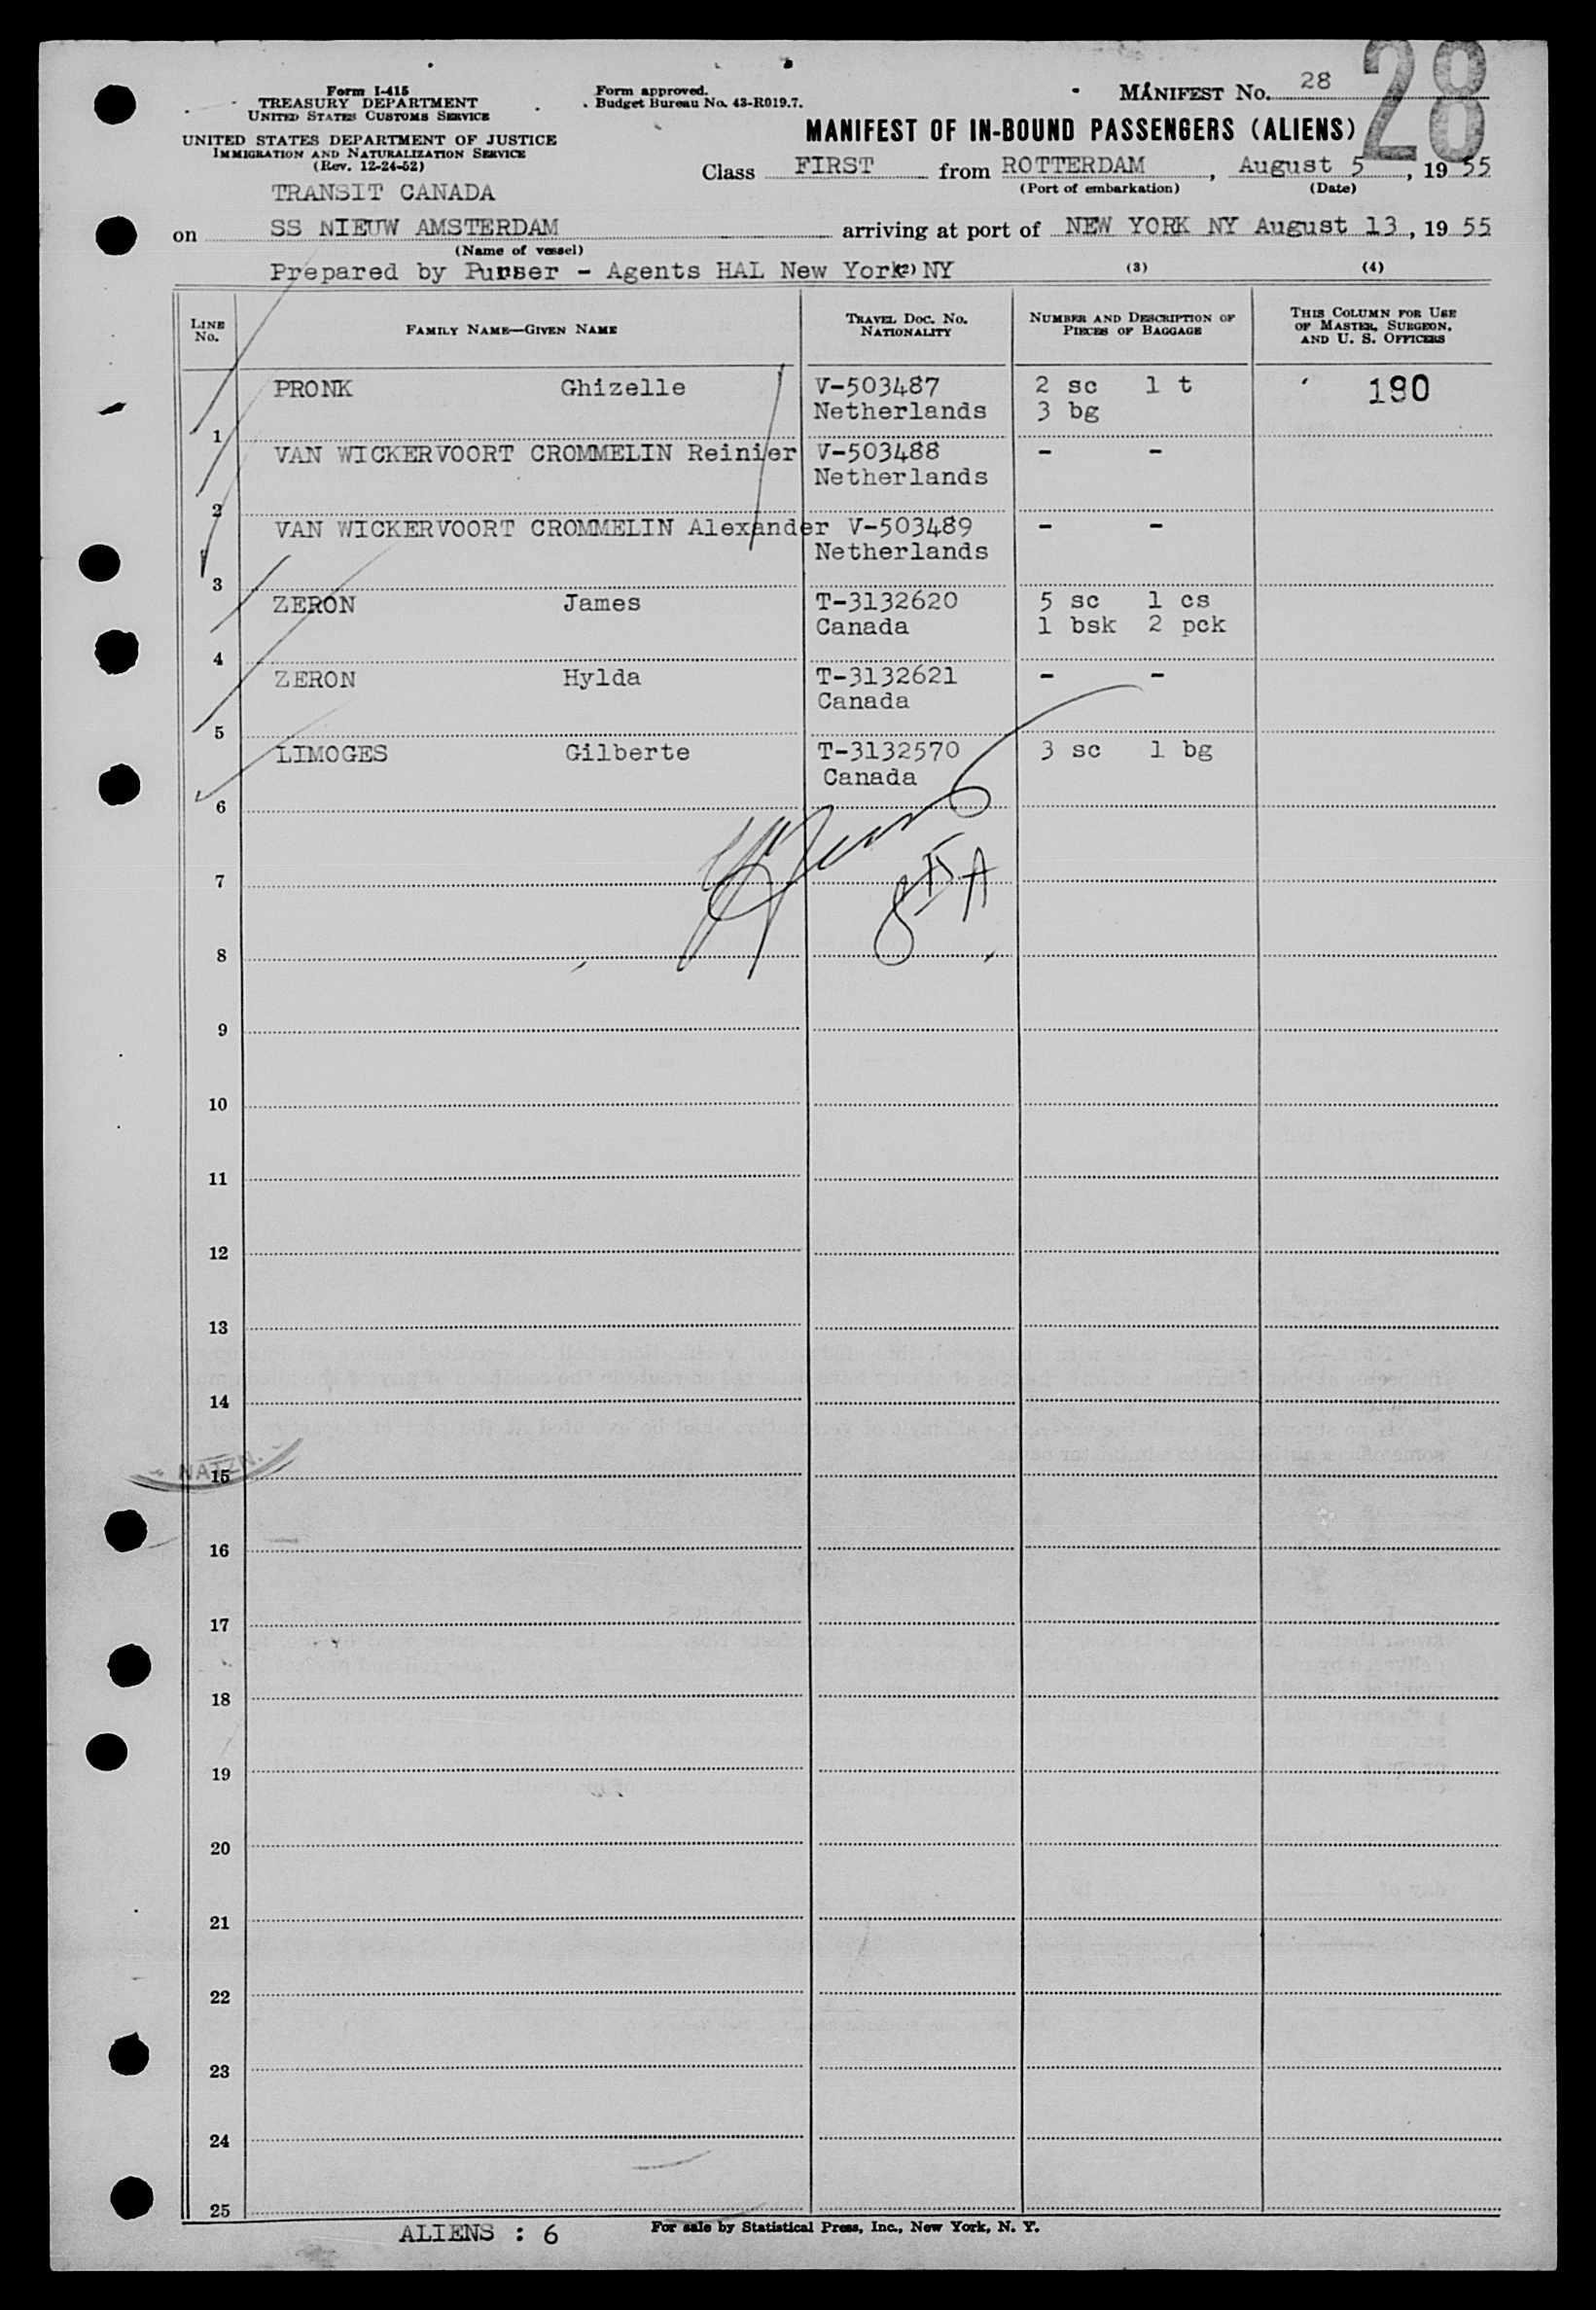 28
Form I-415
TREASURY DEPARTMENT
UNITED STATES CUSTOMS SERVICE
UNITED STATES DEPARTMENT OF JUSTICE
IMMIGRATION AND NATURALIZATION SERVICE
(Rev. 12-24-52)
Form approved.
Budget Bureau No. 43-R019.7.
MANIFEST No. 28
MANIFEST OF IN-BOUND PASSENGERS (ALIENS)
Class FIRST from ROTTERDAM, August 5, 1955
(Port of embarkation) (Date)
TRANSIT CANADA
on SS NIEUW AMSTERDAM arriving at port of NEW YORK NY August 13, 1955
(Name of vessel)
Prepared by Purser - Agents HAL New York NY (2) (3) (4)
LINE No. FAMILY NAME—GIVEN NAME TRAVEL DOC. No. NATIONALITY NUMBER AND DESCRIPTION OF PIECES OF BAGGAGE THIS COLUMN FOR USE OF MASTER, SURGEON, AND U. S. OFFICERS
PRONK Ghizelle V-503487 2 sc 1 t 190
Netherlands 3 bg
1
VAN WICKERVOORT CROMMELIN Reinier V-503488 - -
Netherlands
2
VAN WICKERVOORT CROMMELIN Alexander V-503489 - -
Netherlands
3
ZERON James T-3132620 5 sc 1 cs
Canada 1 bsk 2 pck
4
ZERON Hylda T-3132621 - -
Canada
5
LIMOGES Gilberte T-3132570 3 sc 1 bg
Canada
6
7
8
9
10
11
12
13
14
NATZN.
15
16
17
18
19
20
21
22
23
24
25
ALIENS : 6
For sale by Statistical Press, Inc., New York, N. Y.